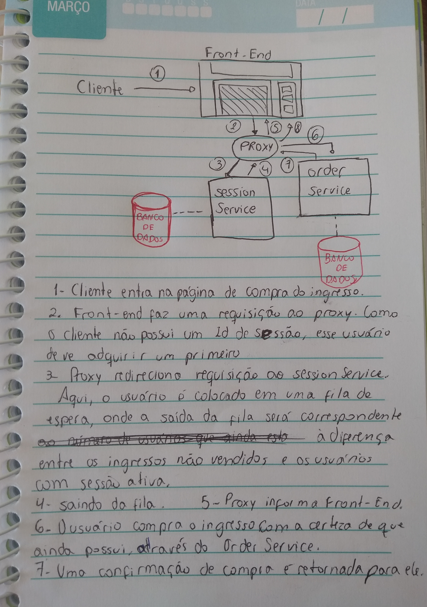 MARÇO
DATA
/ /
Front-End
Cliente
1
2
5
8
6
PROXY
3
4
7
Session
Service
order
Service
BANCO
DE
DADOS
BANCO
DE
DADOS
1- Cliente entra na página de compra do ingresso.
2. Front-end faz uma requisição ao proxy. Como
o cliente não possui um Id de sessão, esse usuário
deve adquirir um primeiro
3- Proxy redireciona requisição ao session Service.
Aqui, o usuário é colocado em uma fila de
espera, onde a saída da fila será correspondente
ao número de usuários que ainda esta à diferença
entre os ingressos não vendidos e os usuários
com sessão ativa.
4- saindo da fila. 5- Proxy informa Front-End.
6- O usuário compra o ingresso com a certeza de que
ainda possui, através do Order Service.
7- Uma confirmação de compra é retornada para ele.